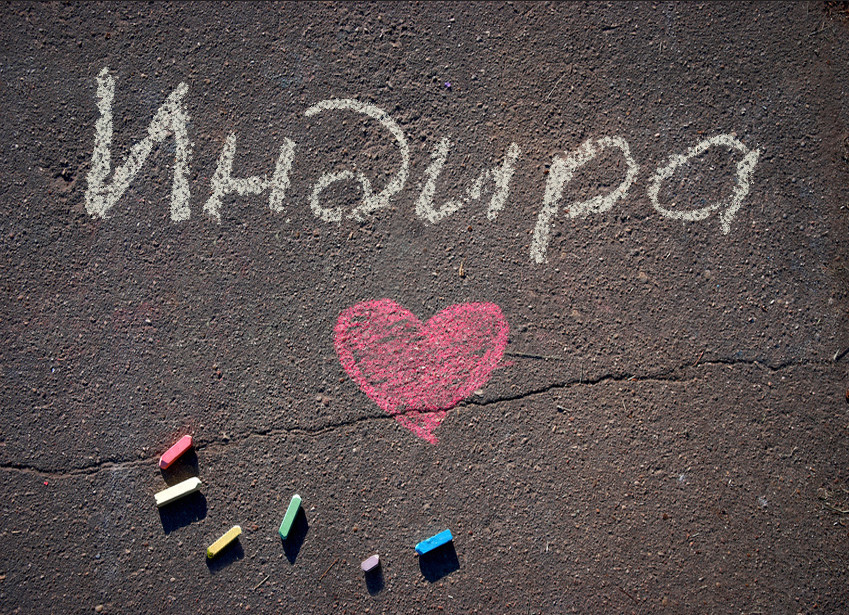 Индира